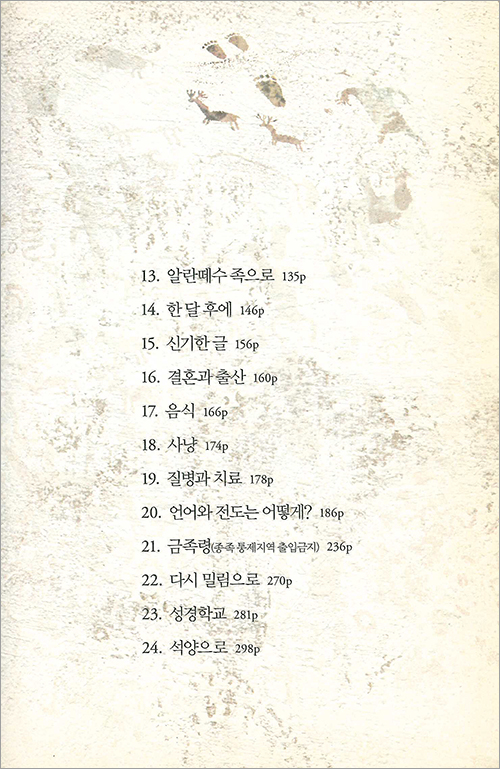 13. 알란떼수 족으로 135p
14. 한 달 후에 146p
15. 신기한 글 156p
16. 결혼과 출산 160p
17. 음식 166p
18. 사냥 174p
19. 질병과 치료 178p
20. 언어와 전도는 어떻게? 186p
21. 금족령(종족 통제지역 출입금지) 236p
22. 다시 밀림으로 270p
23. 성경학교 281p
24. 석양으로 298p